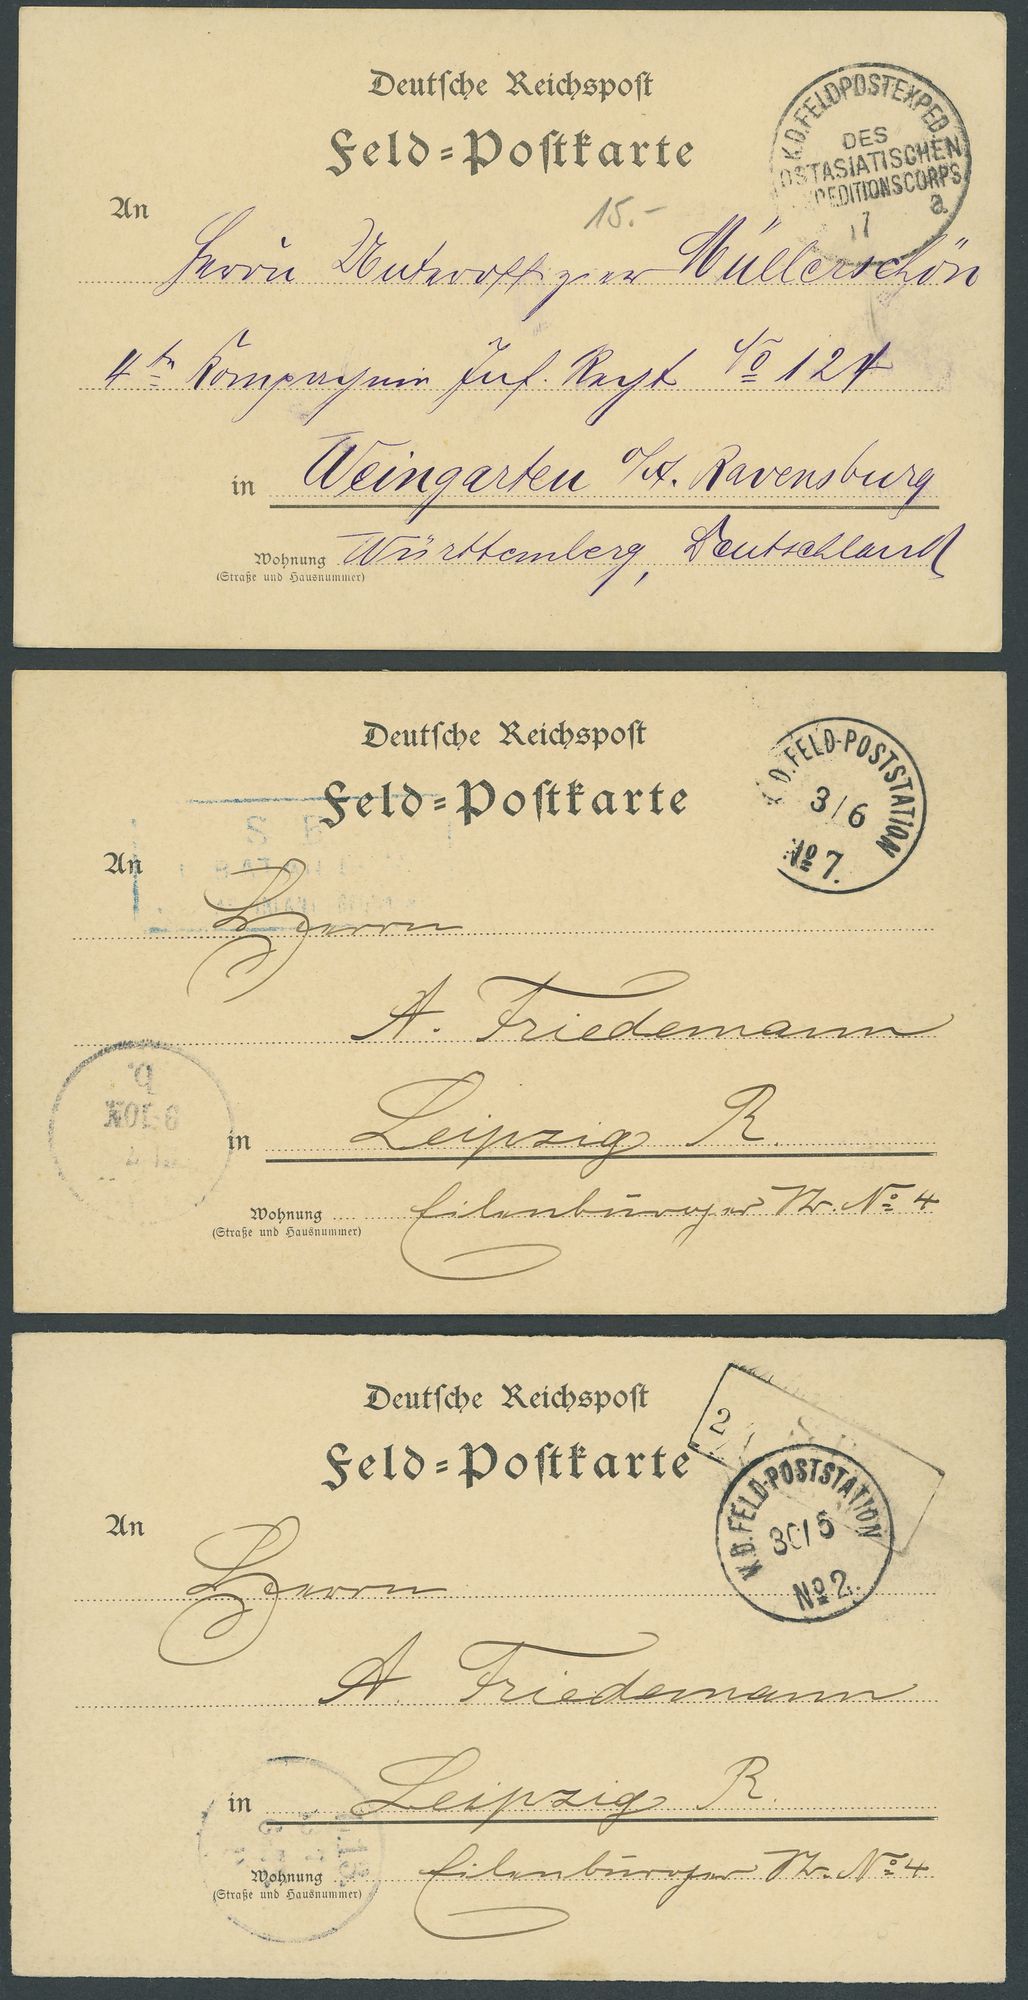 Deutsche Reichspost
Feld=Postkarte
K.D.FELDPOSTEXPED.
DES
OSTASIATISCHEN
EXPEDITIONSCORPS
a
17
15.-
An
Herrn Unteroffizier Müllerschön
4te Kompagnie Inf. Regt No 124
in Weingarten o/A. Ravensburg
Wohnung Württemberg, Deutschland
(Straße und Hausnummer)
Deutsche Reichspost
Feld=Postkarte
K.D.FELD-POSTSTATION
3/6
No 7.
S B
An
Herrn
A. Friedemann
in Leipzig R.
Wohnung Eilenburger Str. No 4
(Straße und Hausnummer)
Deutsche Reichspost
Feld=Postkarte
2
K.D.FELD-POSTSTATION
30/5
No 2.
An
Herrn
A. Friedemann
in Leipzig R.
Wohnung Eilenburger Str. No 4
(Straße und Hausnummer)